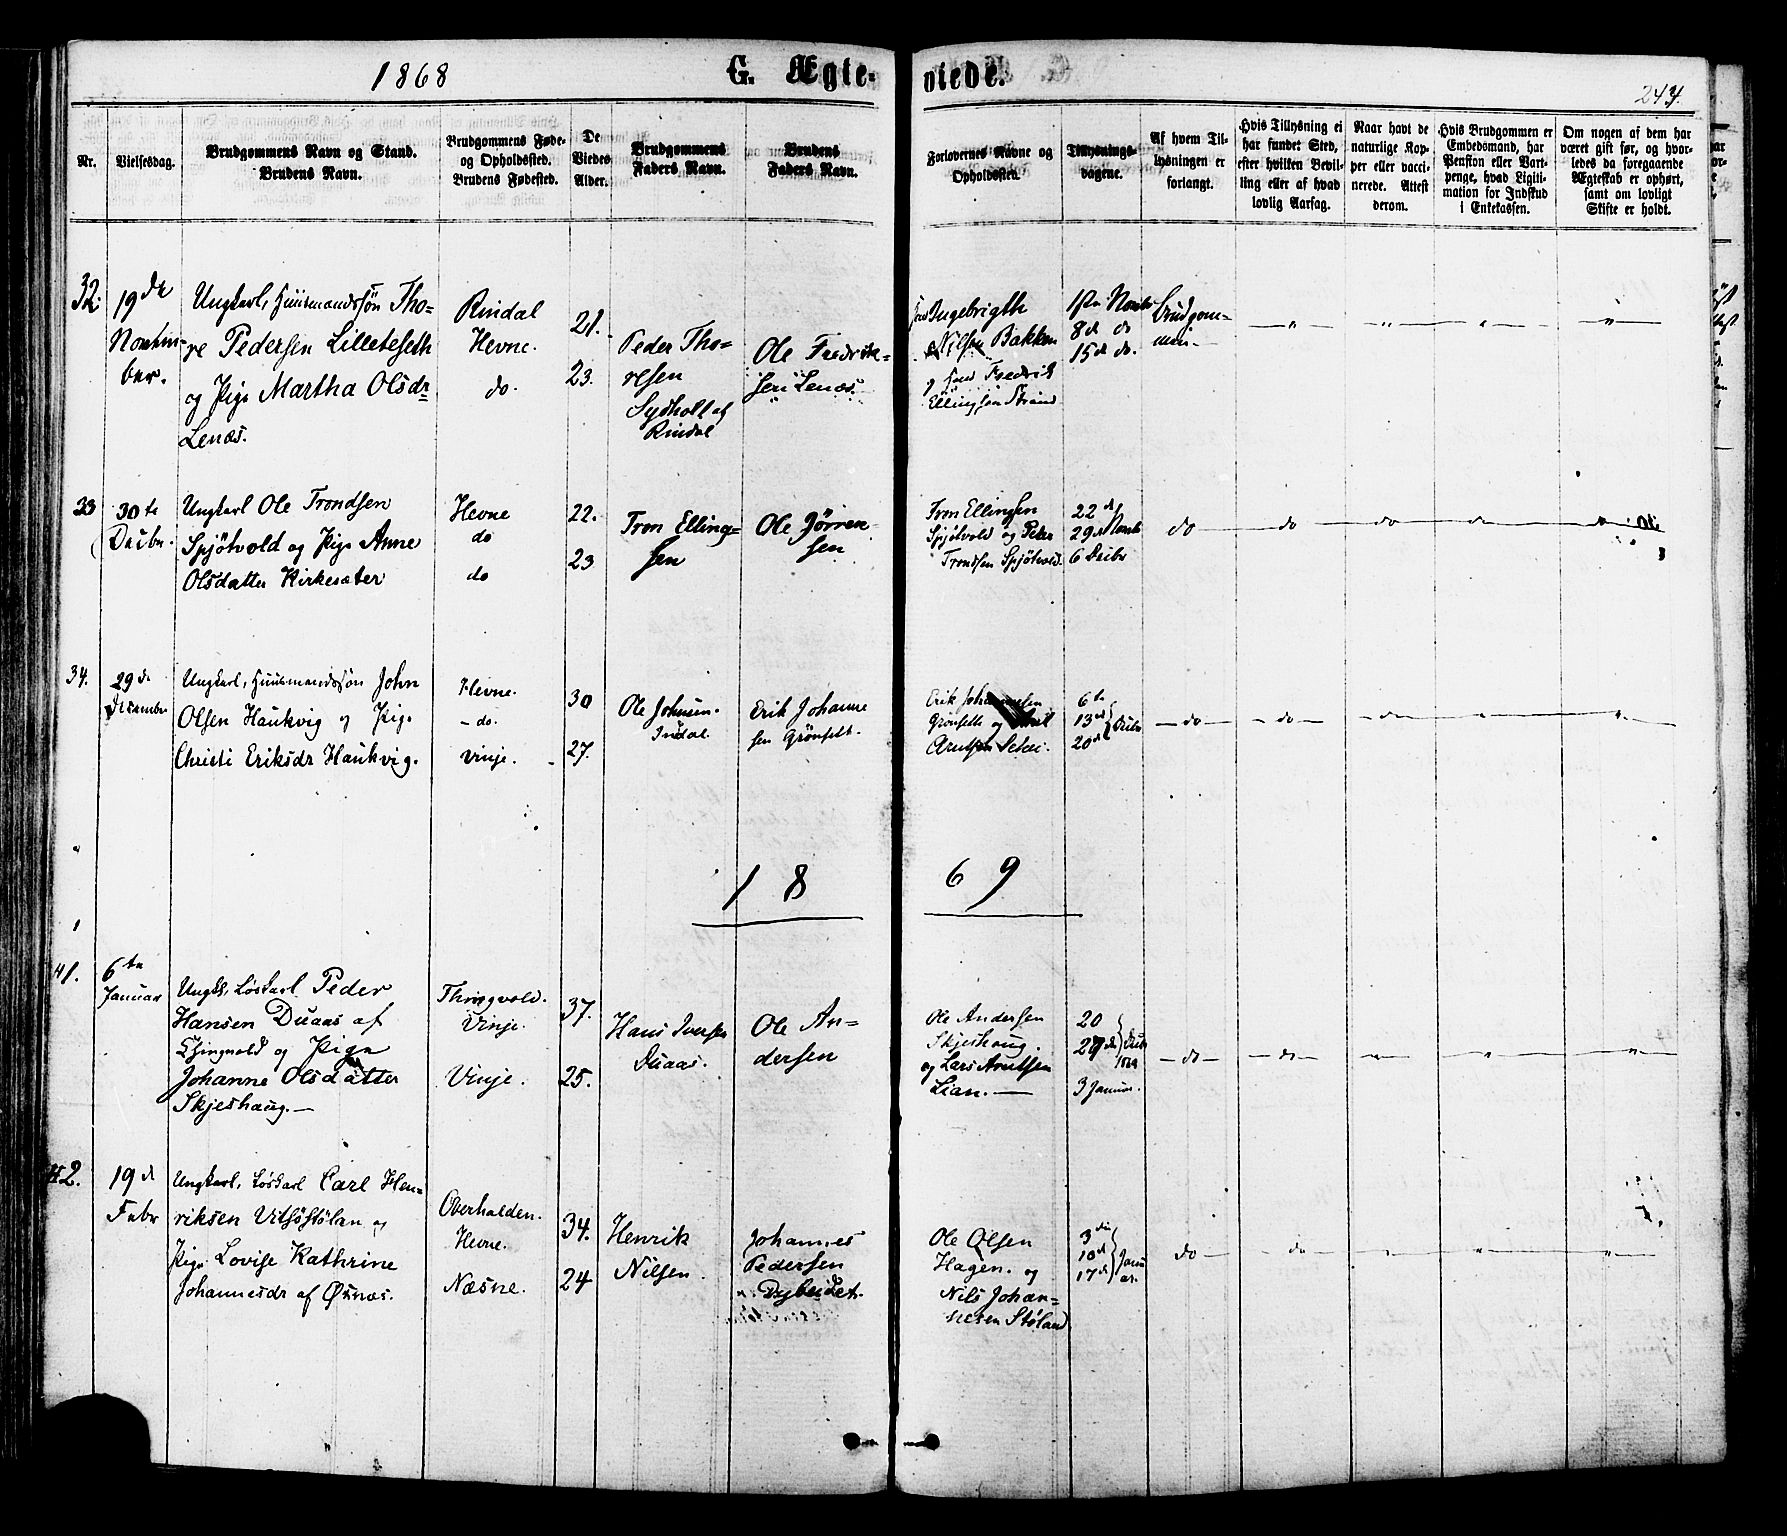 1868
G. Ægte-
viede.
244.
Nr.
Vielsesdag.
Brudgommens Navn og Stand.
Brudens Navn.
Brudgommens Føde-
og Opholdssted.
Brudens Fødested.
De
Viedes
Alder.
Brudgommens
Faders Navn.
Brudens
Faders Navn.
Forlovernes Navne og
Opholdssted.
Tillysnings-
dagene.
Af hvem Til-
lysningen er
forlangt.
Hvis Tillysning ei
har fundet Sted,
efter hvilken Bevil-
ling eller af hvad
lovlig Aarsag.
Naar havt de
naturlige Kop-
per eller vacci-
nerede. Attest
derom.
Hvis Brudgommen er
Embedsmand, har
Pension eller Vart-
penge, hvad Ligiti-
mation for Indskud
i Enkekassen.
Om nogen af dem har
været gift før, og hvor-
ledes da foregaaende
Ægteskab er ophørt,
samt om lovligt
Skifte er holdt.
32.
19de
Novem-
ber.
Ungkarl, Huusmandssøn Tho-
re Pedersen Lilleteseth
og Pige Martha Olsdr
Lenæs.
Rindal
Hevne.
do.
21.
23.
Peder Tho-
resen
af
Rindal
Ole Fredrik-
sen Lenæs.
Ingebrigth
Nilsen Bakken
Fredrik
Ellingsen Strand
1ste Novbr
8de do
15de do.
Brudgom-
men.
33
30te
Decbr.
Ungkarl Ole Trondsen
Spjøtvold og Pige Anne
Olsdatter Kirkesæter
Hevne
do
do
22.
23
Tron Elling-
sen
Ole Jørren-
sen
Tron Ellingsen
Spjøtvold og Peter
Trondsen Spjøtvold.
22de
29de Novbr
6 Decbr
do
do
do
do
34.
29de
December
Ungkarl, Huusmandssøn John
Olsen Haukvig og Pige
Christi Eriksdr Haukvig.
Hevne.
- do.
Vinje.
30
27.
Ole Johnsen.
Indal.
Erik Johanne
sen Grønseth.
Erik Johannesen
Grønseth og
Arntsen
6te
13de
20de
Decbr
- do -
- do -
- do -
1869
1.
6te
Januar
Ungk. Løskarl Peder
Hansen Duaas af
Thingvold og Pige
Johanne Olsdatter
Skjeshaug.
Thingvold.
Vinje.
Vinje.
37.
25.
Hans Iversen
Duaas.
Ole An-
dersen
Ole Andersen
Skjeshaug.
og Lars Arntsen
Lian.
20
27de
Decbr
3 Januar.
- do -
- do -
2.
19de
Febr
Ungkarl, Løskarl Carl Hen-
riksen Vitsøstølan og
Pige Lovise Kathrine
Johannesdr af Øsnæs.
Overhalden.
Hevne.
Næsne.
34.
24
Henrik
Nilsen.
Johannes
Pedersen
Dybeidet.
Ole Olsen
Hagen. og
Nils Johan-
nesen Støland
3die
10de
17de
Janu
ar.
do
do